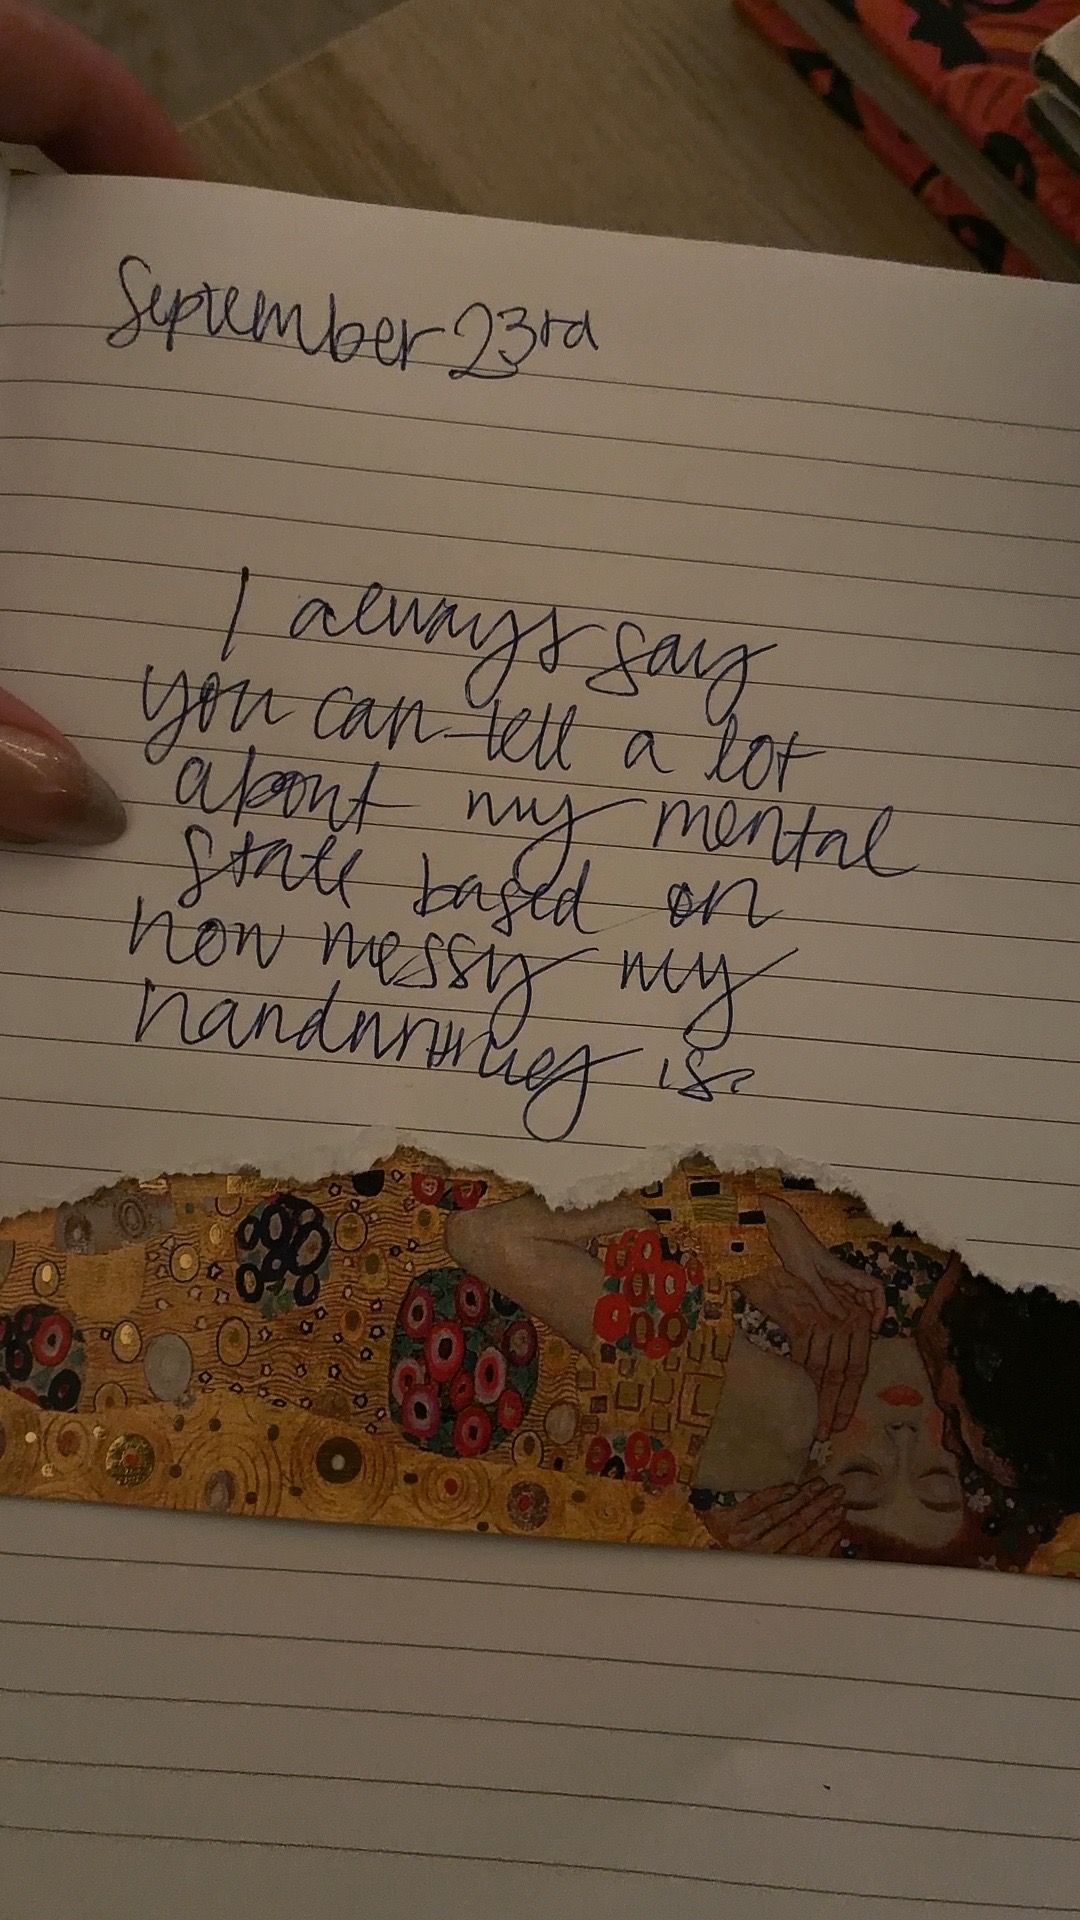 September 23rd
I always say
you can tell a lot
about my mental
state based on
how messy my
handwriting is.